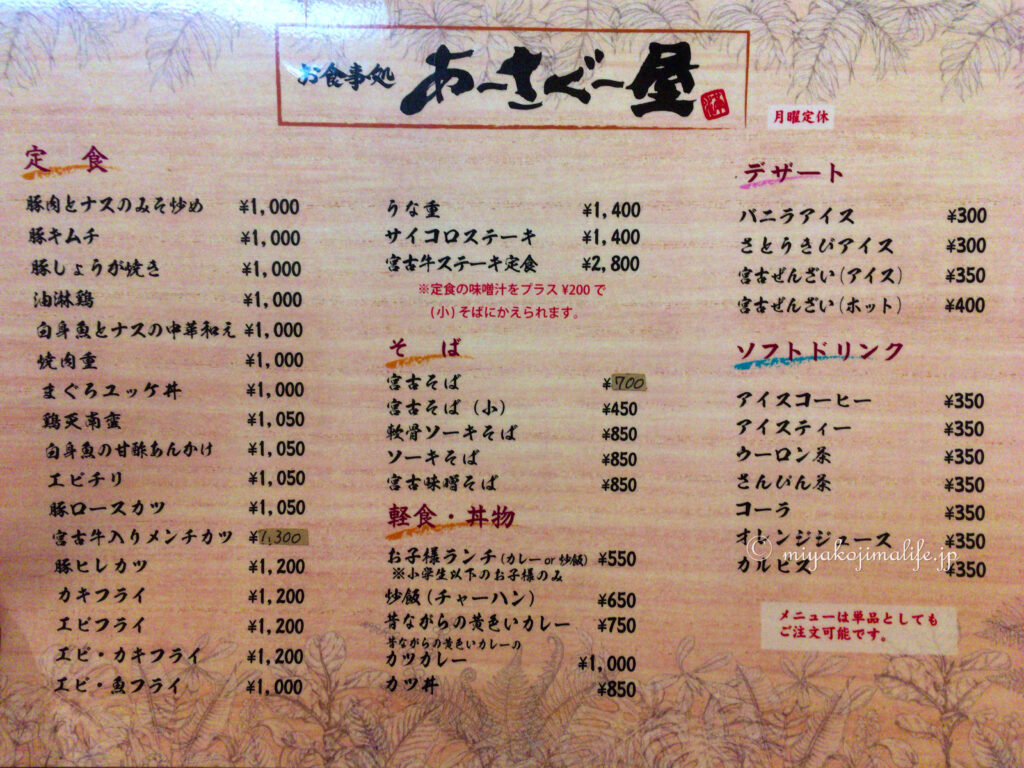 お食事処 あーさぐー屋
月曜定休
定 食
豚肉とナスのみそ炒め ¥1,000
豚キムチ ¥1,000
豚しょうが焼き ¥1,000
油淋鶏 ¥1,000
白身魚とナスの中華和え ¥1,000
焼肉重 ¥1,000
まぐろユッケ丼 ¥1,000
鶏天南蛮 ¥1,050
白身魚の甘酢あんかけ ¥1,050
エビチリ ¥1,050
豚ロースカツ ¥1,050
宮古牛入りメンチカツ ¥1,300
豚ヒレカツ ¥1,200
カキフライ ¥1,200
エビフライ ¥1,200
エビ・カキフライ ¥1,200
エビ・魚フライ ¥1,000
うな重 ¥1,400
サイコロステーキ ¥1,400
宮古牛ステーキ定食 ¥2,800
※定食の味噌汁をプラス ¥200 で
(小) そばにかえられます。
そ ば
宮古そば ¥700
宮古そば (小) ¥450
軟骨ソーキそば ¥850
ソーキそば ¥850
宮古味噌そば ¥850
軽食・丼物
お子様ランチ (カレー or 炒飯) ¥550
※小学生以下のお子様のみ
炒飯 (チャーハン) ¥650
昔ながらの黄色いカレー ¥750
昔ながらの黄色いカレーの
カツカレー ¥1,000
カツ丼 ¥850
デザート
バニラアイス ¥300
さとうきびアイス ¥300
宮古ぜんざい (アイス) ¥350
宮古ぜんざい (ホット) ¥400
ソフトドリンク
アイスコーヒー ¥350
アイスティー ¥350
ウーロン茶 ¥350
さんぴん茶 ¥350
コーラ ¥350
オレンジジュース ¥350
カルピス ¥350
© miyakojimalife.jp
メニューは単品としても
ご注文可能です。